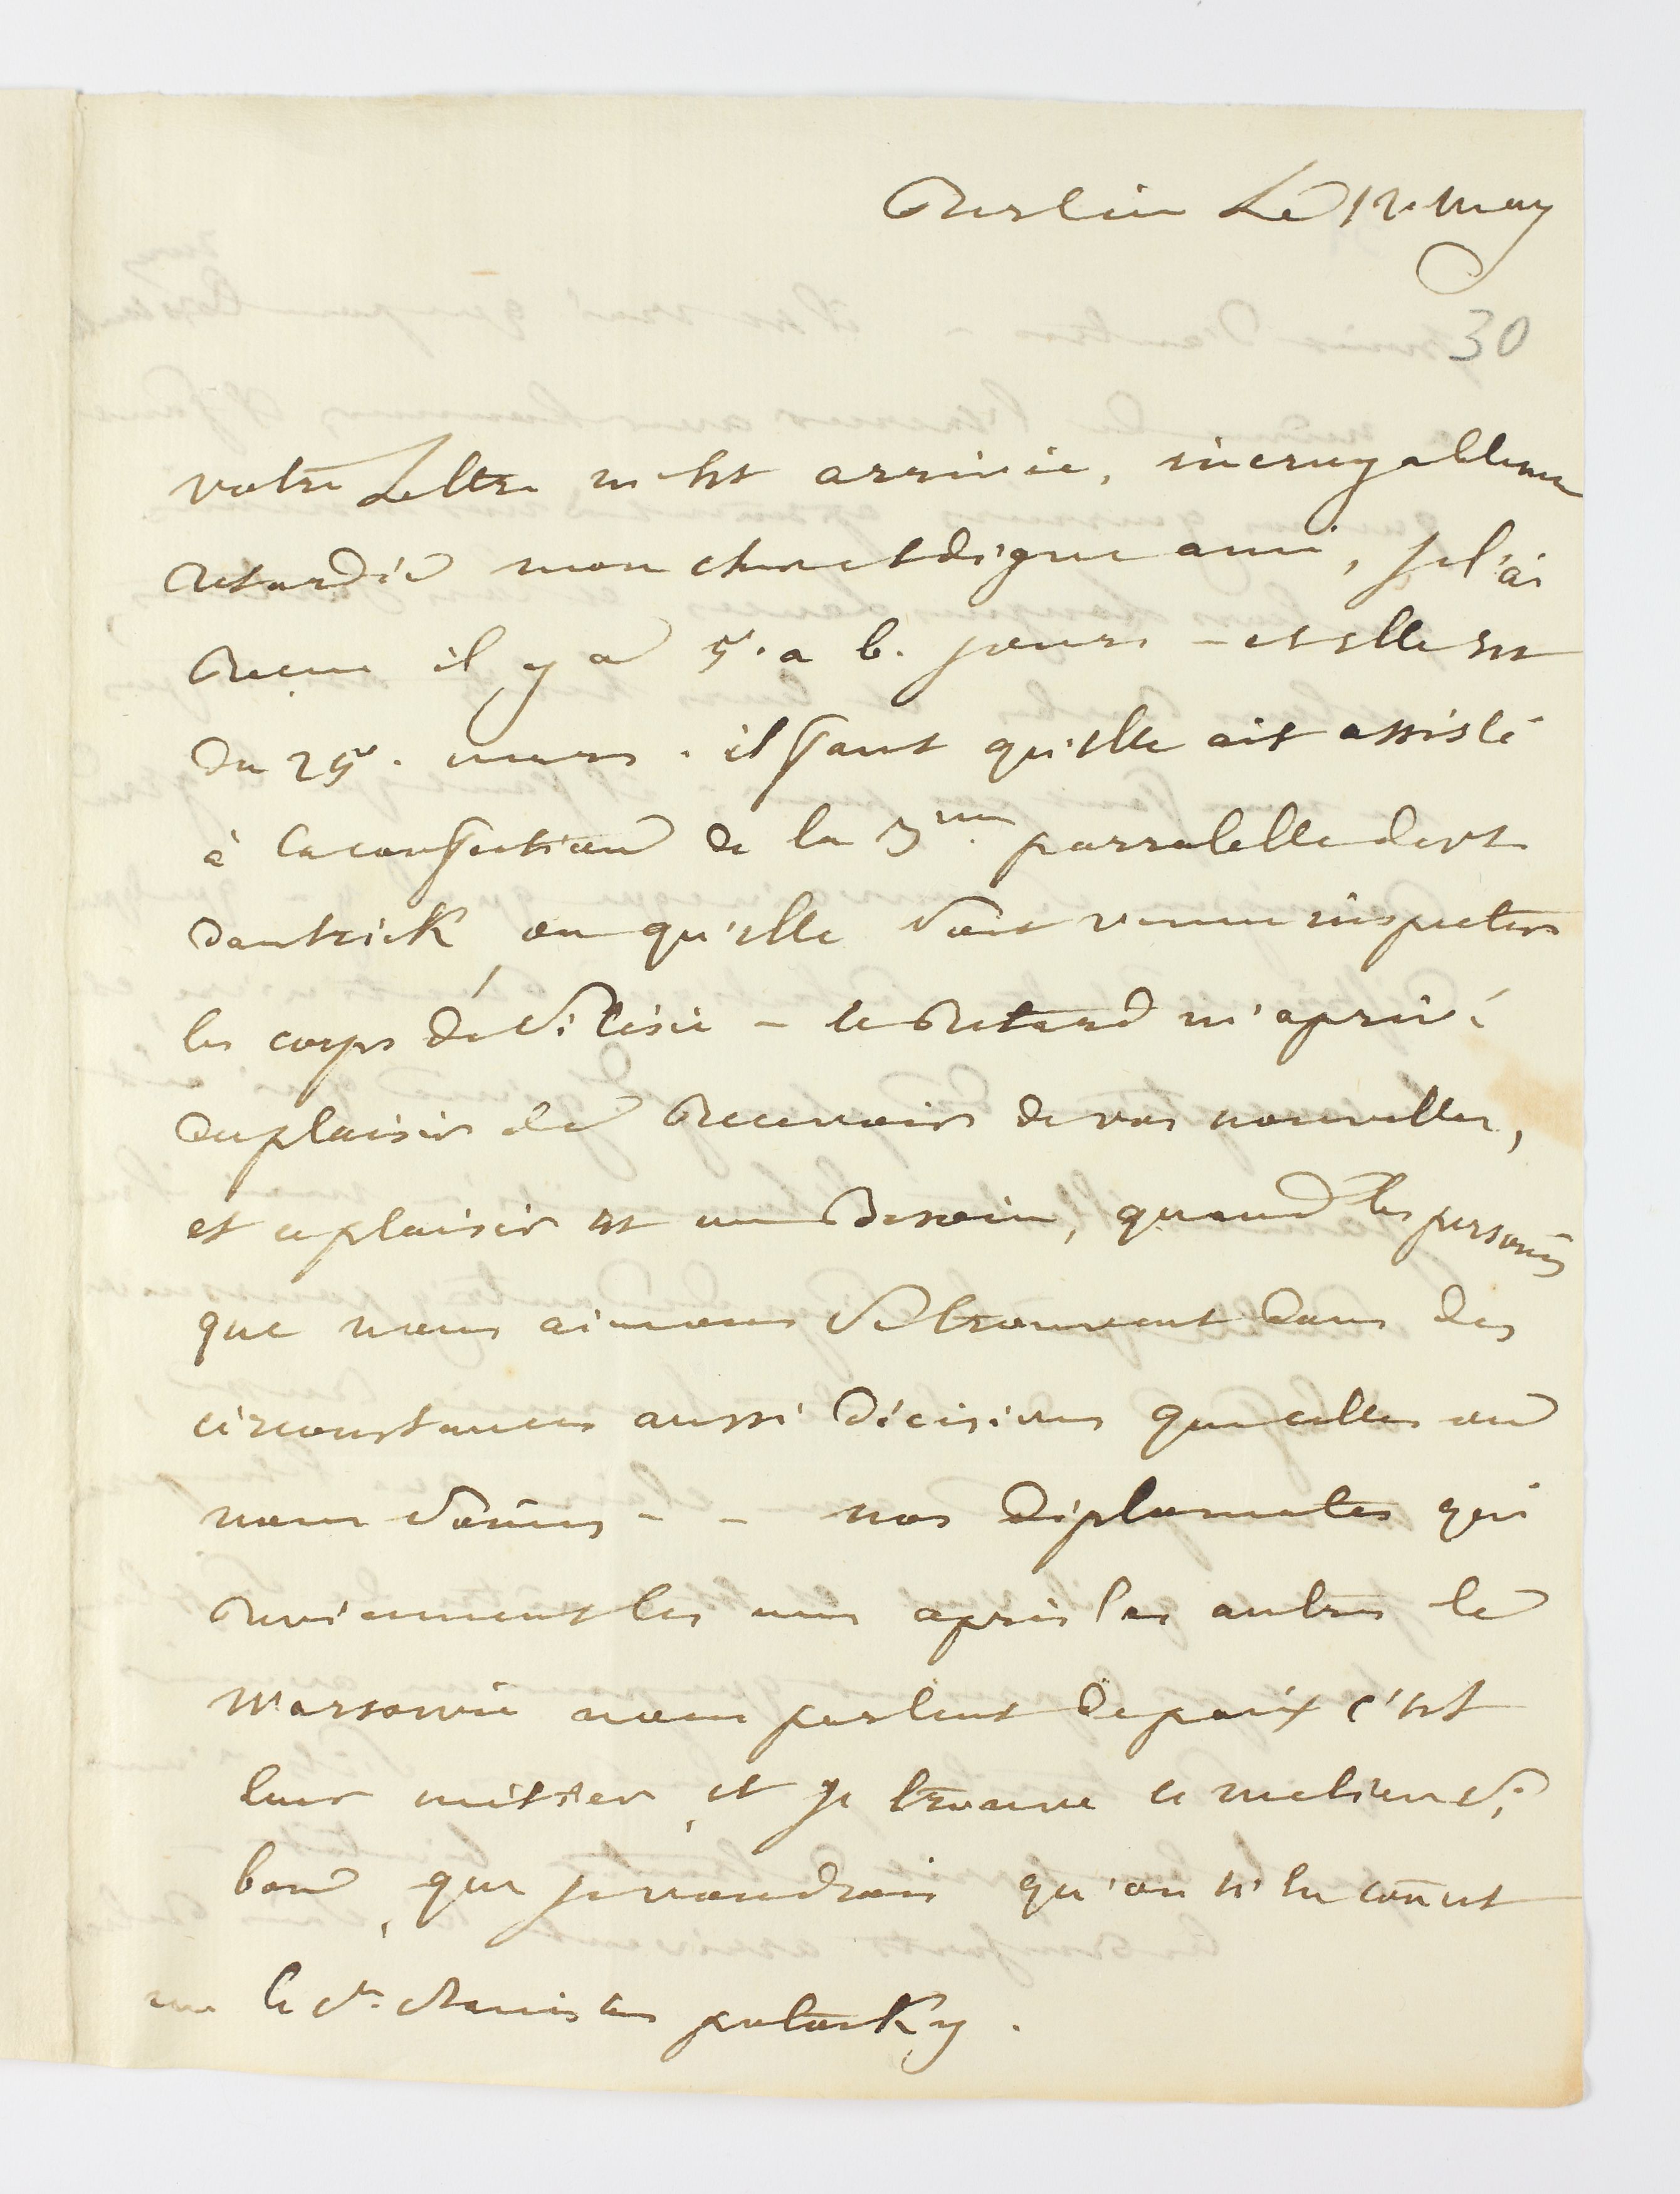 Berlin Le 12. may
30
votre Lettre m'est arrivée, incroyablement
retardée mon cher et digne ami, je l'ai
recue il y a 5. a 6. jours - et elle est
du 25. mars. il faut qu'elle ait assisté
à la confection de la 3me parralelle devt
dantzick ou qu'elle soit venue inspecter
les corps de Silésie - le retard m'a privé
du plaisir de recevoir de vos nouvelles,
et ce plaisir est un besoin, quand les personnes
que nous aimons se trouvent dans des
circonstances aussi décisives que celles ou
nous sômes - - nos diplomates qui
reviennent les uns après les autres de
Warsovie nous parlent de paix c'est
leur métier, et je trouve ce metier si
bon, que je voudrois qu'on n'en conut
potocky.